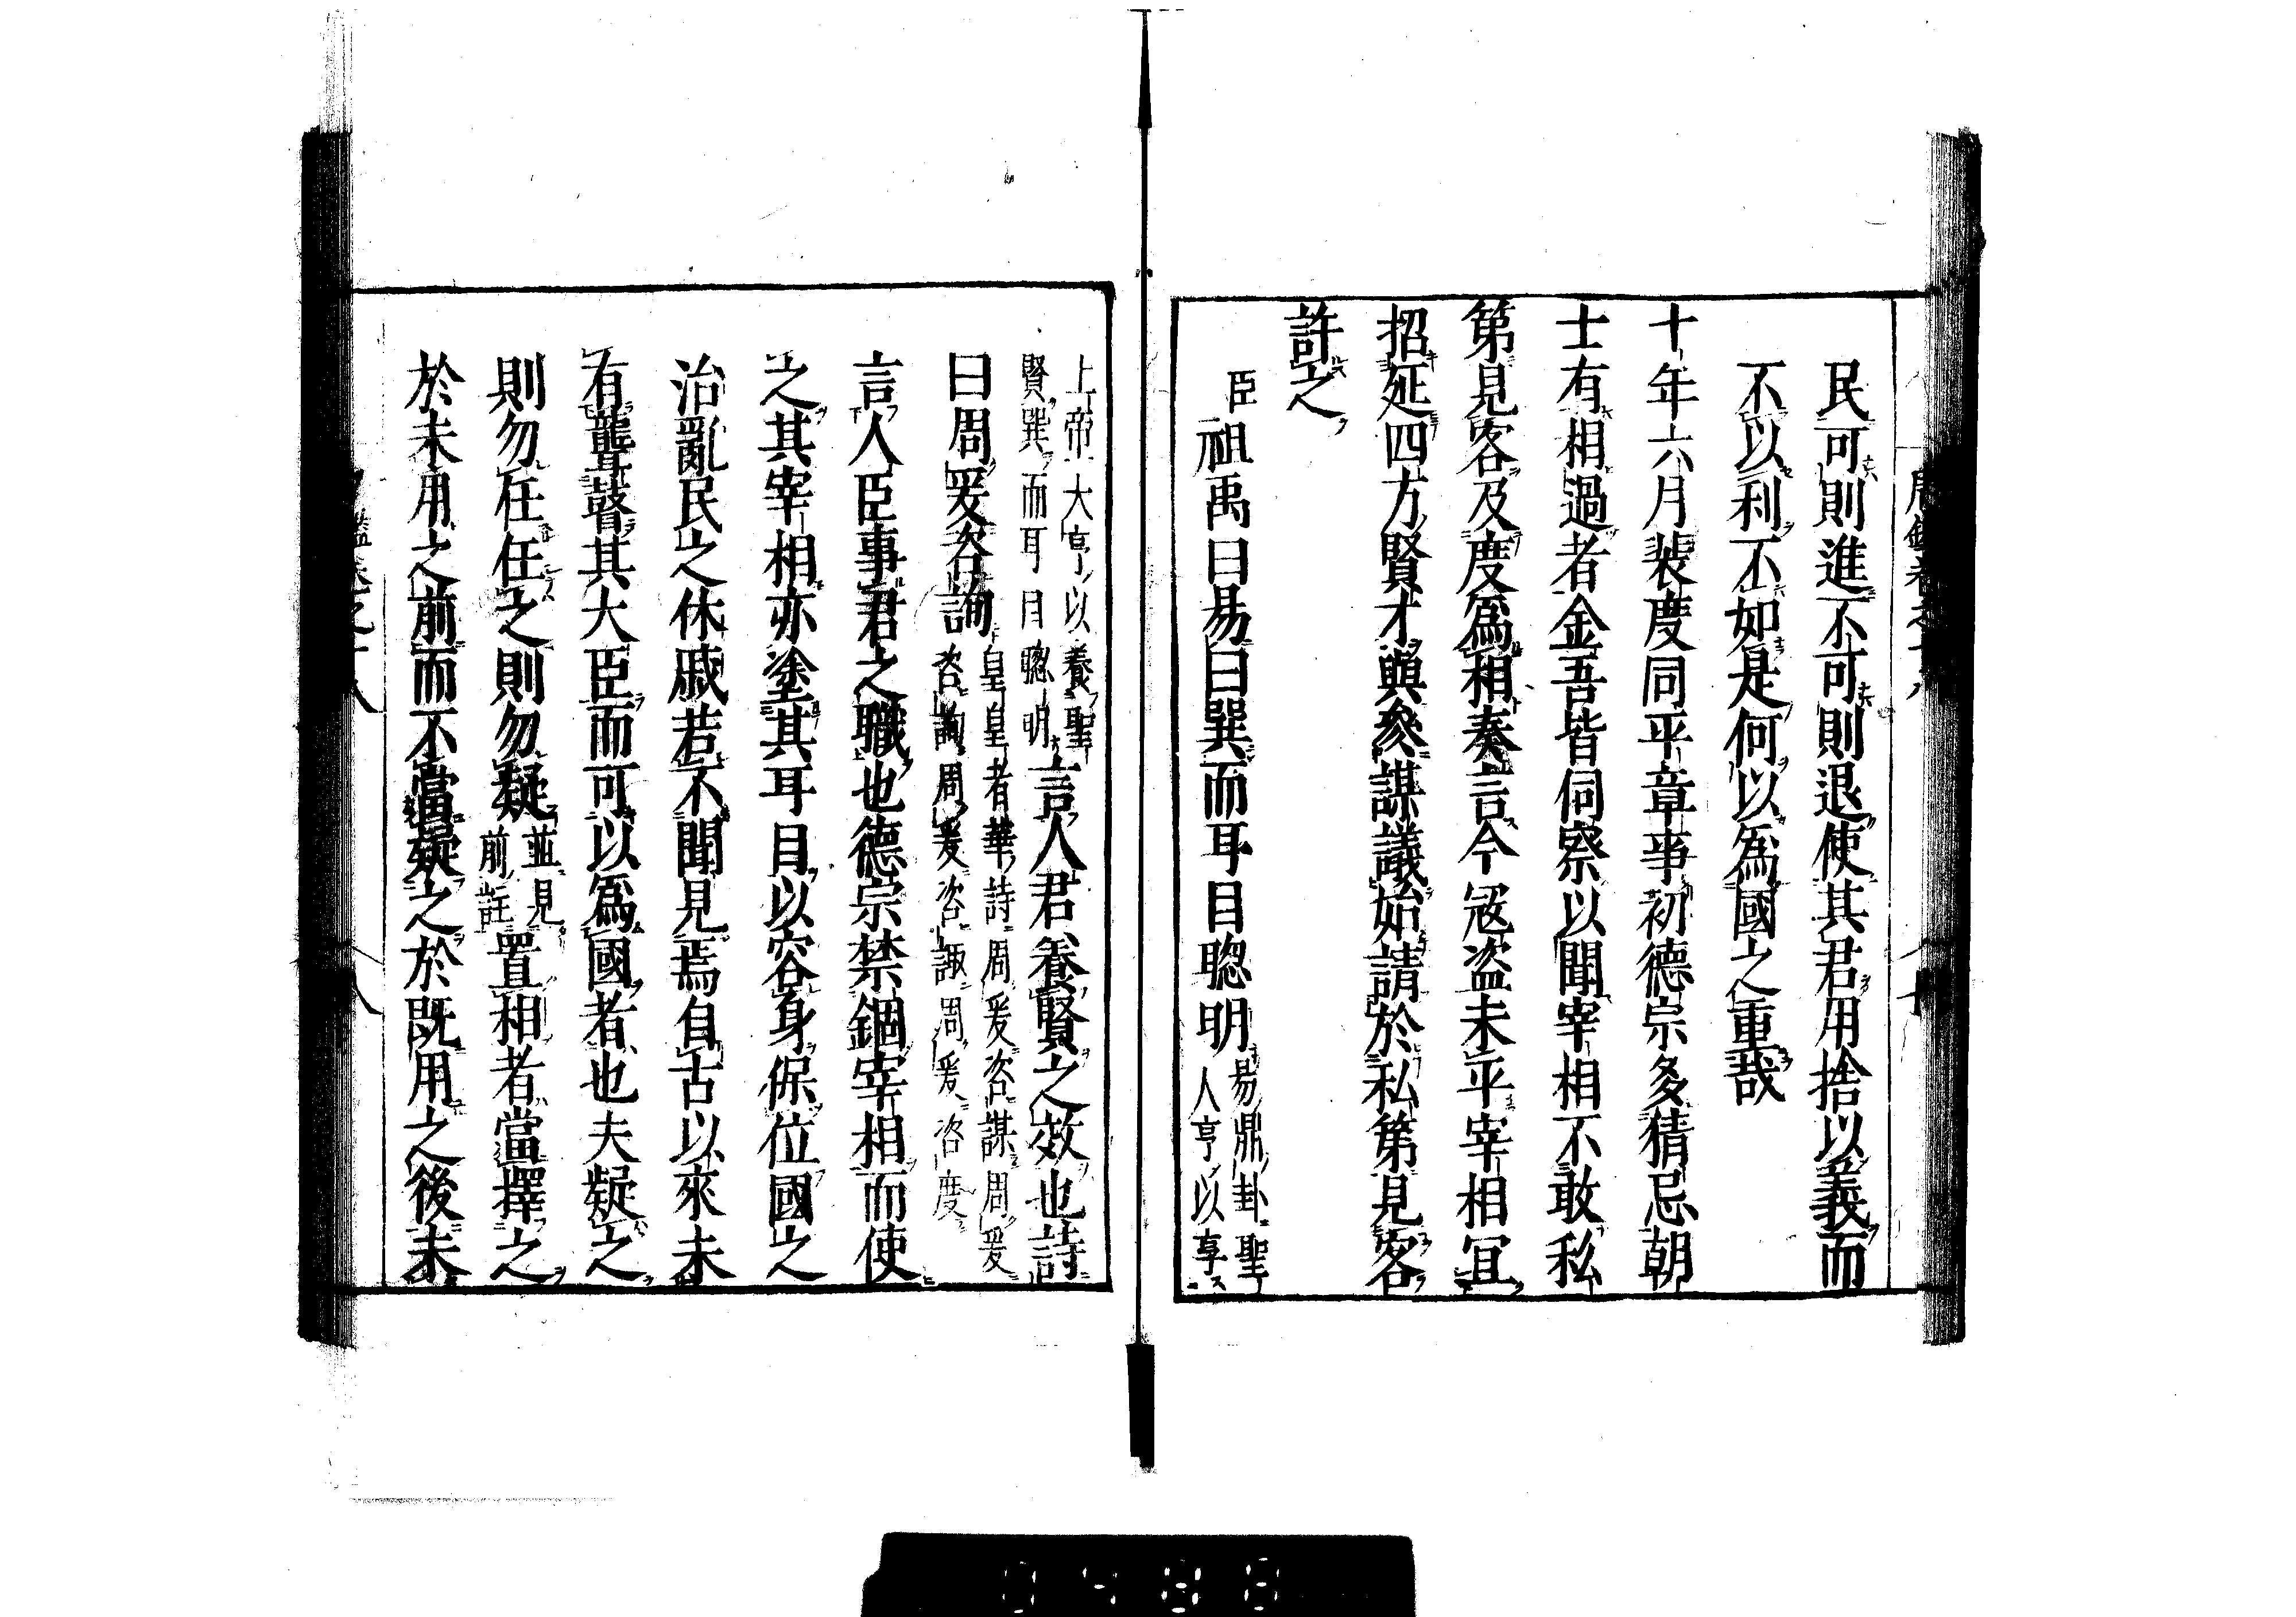 唐鑑卷之十八
民可則進不可則退使其君用捨以義而
不以利不如是何以爲國之重哉
十年六月裴度同平章事初德宗多猜忌朝
士有相過者金吾皆伺察以聞宰相不敢私
第見客及度爲相奏言今寇盗未平宰相宜
招延四方賢才與參謀議始請於私第見客
許之
臣祖禹曰易曰巽而耳目聰明易鼎卦聖
人亨以享
上帝大亨以養聖
賢巽而耳目聰明言人君養賢之效也詩
曰周爰咨詢皇皇者華詩周爰咨謀周爰
咨詢周爰咨諏周爰咨度
言人臣事君之職也德宗禁錮宰相而使
之其宰相亦塗其耳目以容身保位國之
治亂民之休戚若不聞見焉自古以來未
有聾瞽其大臣而可以爲國者也夫疑之
則勿任任之則勿疑並見
前註置相者當擇之
於未用之前而不當疑之於既用之後未